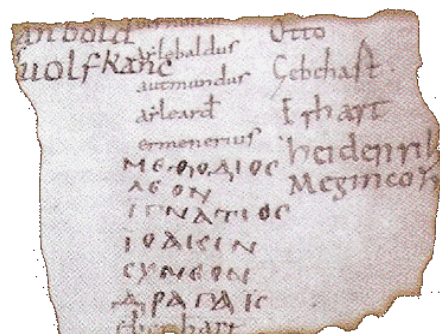 anbold
uolfkanc
arlebaldus
autmundus
arleard
ermenerius
ΜΕΘΟΔΙΟC
ΛΕΟΝ
ΙΓΝΑΤΙΟC
ΙΟΑΚΙΝ
CΥΜΕΟΝ
ΔΡΑΓΑΙC
Otto
Erhart
heidenrih